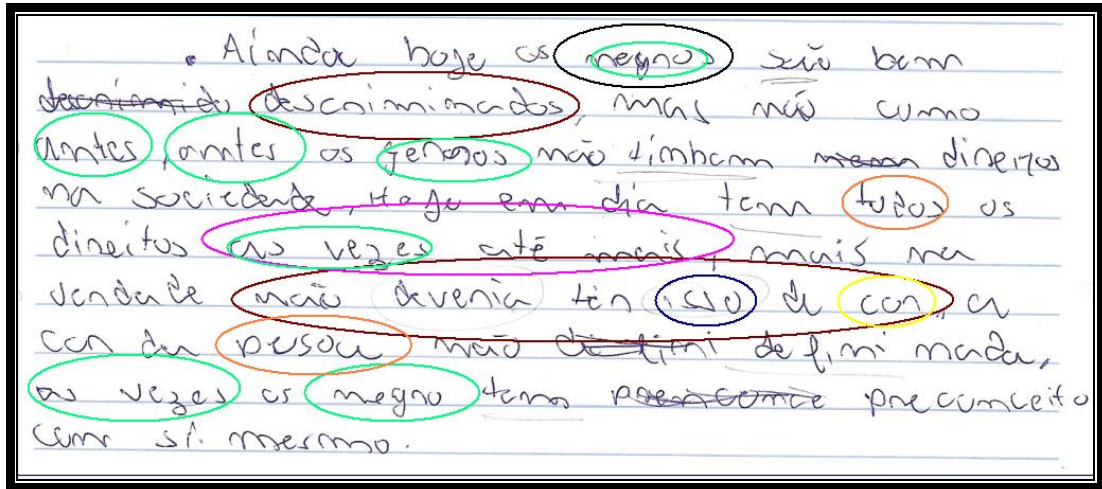 Ainda hoje os negros são bem
descriminados, mas não como
antes, antes os não tinham direitos
na sociedade, Hoje em dia tem todos os
direitos as vezes até mais, mais na
verdade não deveria ter isso de cor, a
cor da pesoa não defini nada,
as vezes os negro tem preconceito
com si mesmo.